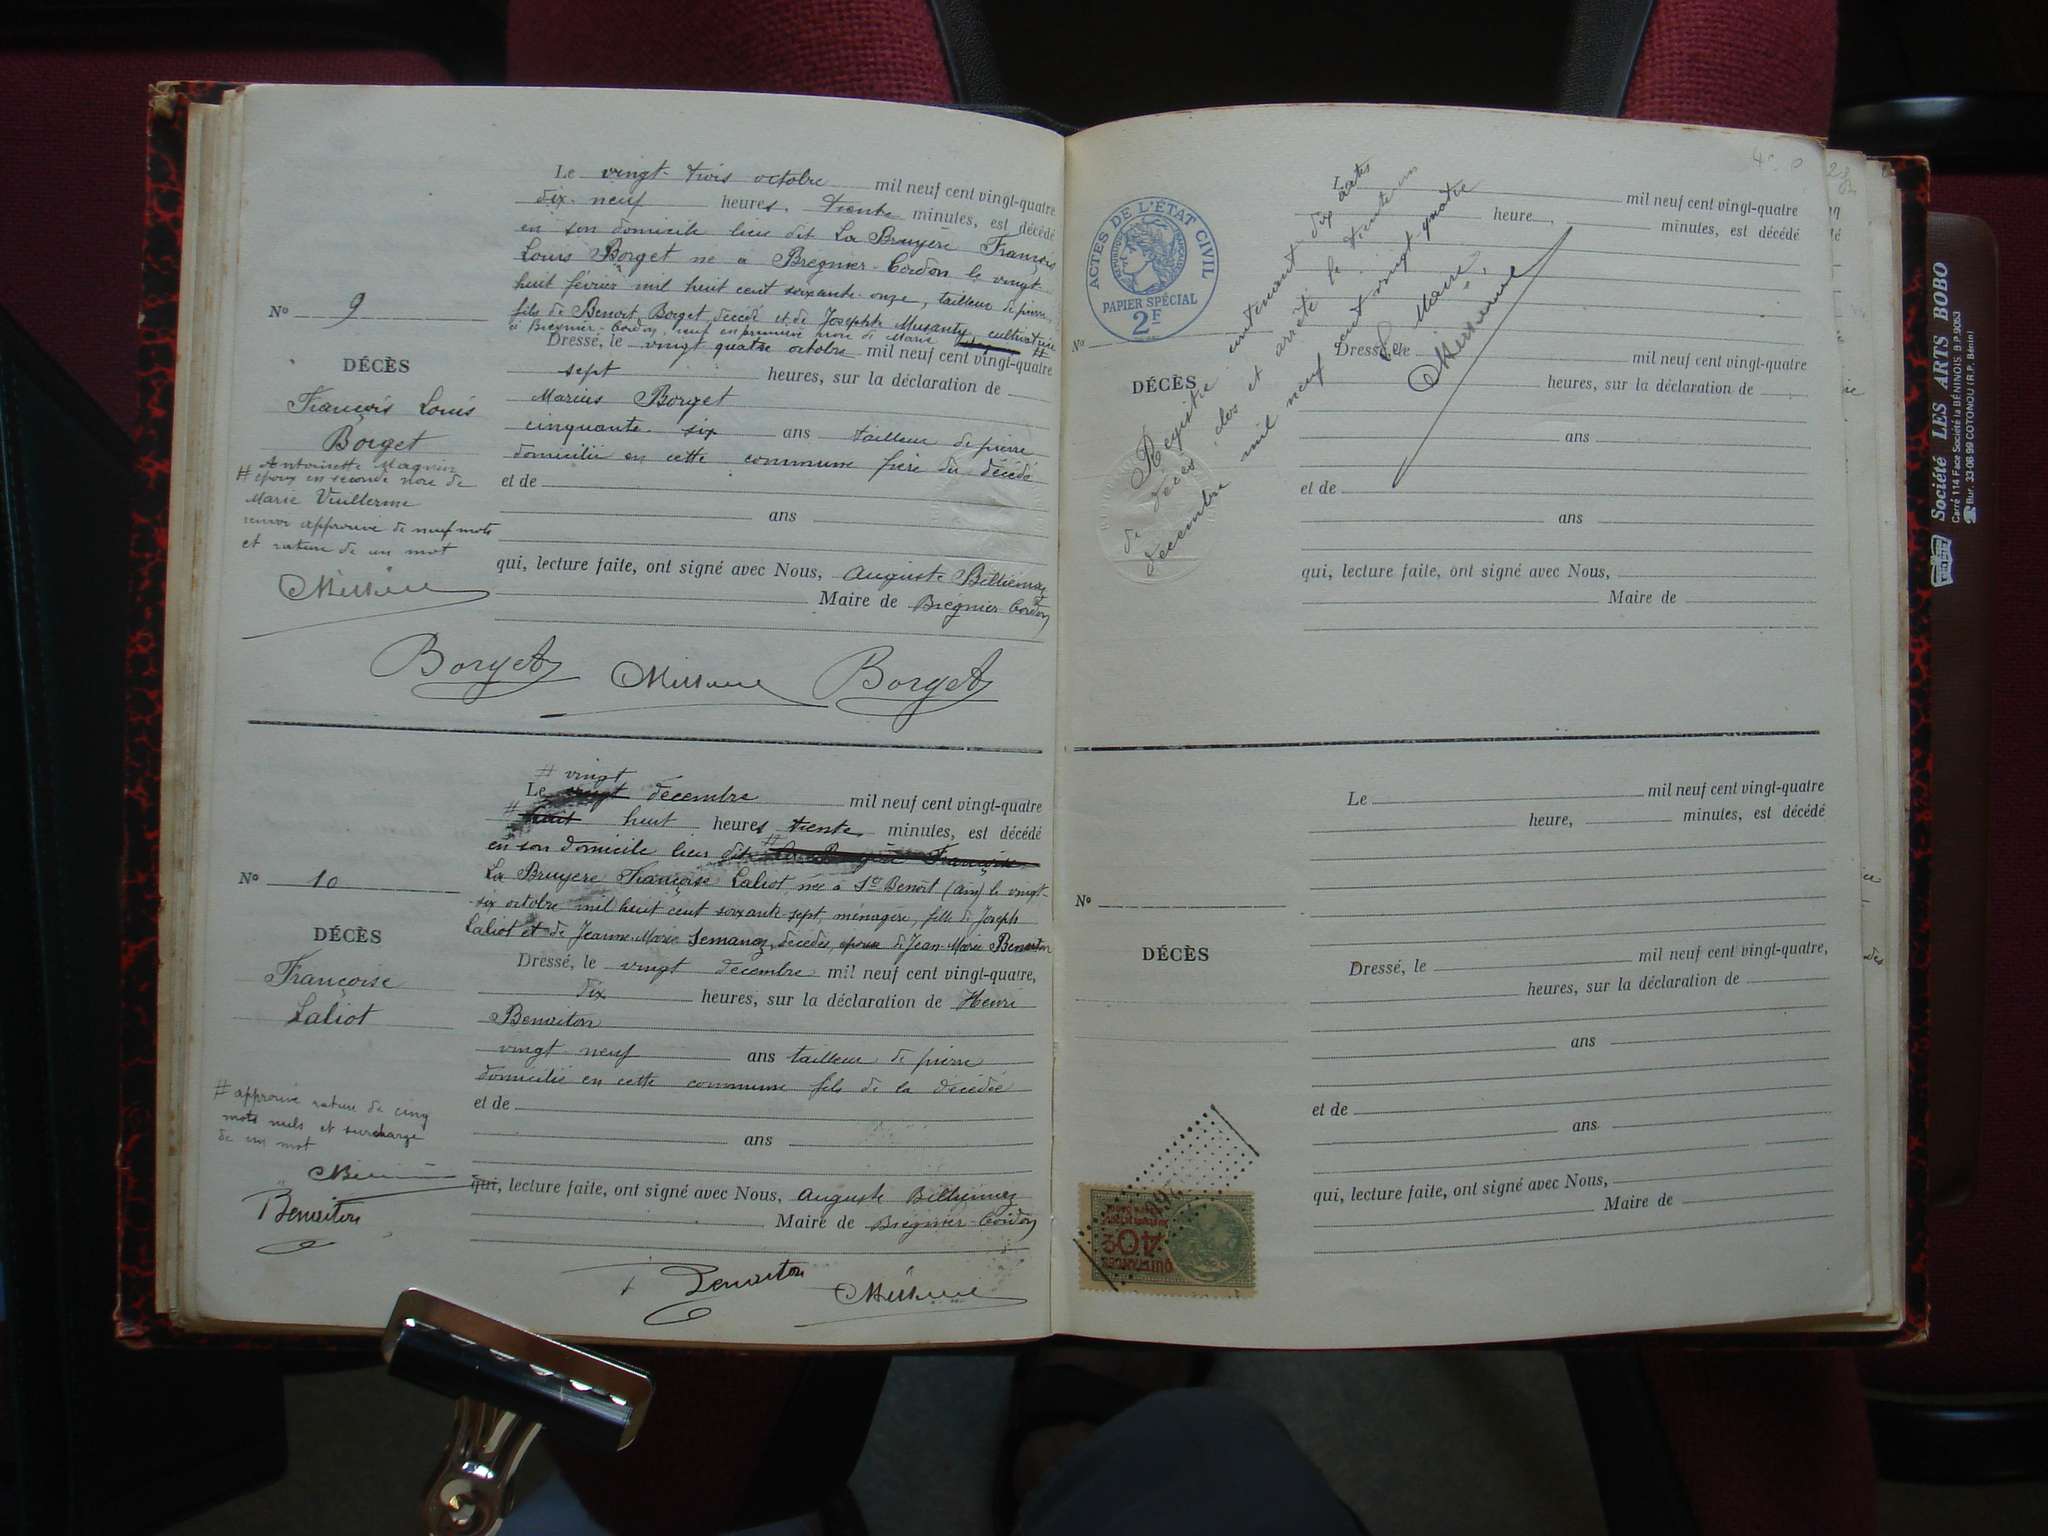 Le vingt-trois octobre mil neuf cent vingt-quatre
dix-neuf heures, trente minutes, est décédé
en son domicile lieu dit La Bruyère François
Louis Borget né à Brégnier-Cordon le vingt-
huit février mil huit cent soixante-onze, tailleur de pierre,
fils de Benoît Borget, décédé et de Josephte Musanty, cultivatrice
à Brégnier-Cordon, veuf en première noce de Marie #
Dressé, le vingt quatre octobre mil neuf cent vingt-quatre
sept heures, sur la déclaration de
Marius Borget
cinquante-six ans tailleur de pierre
domicilié en cette commune frère du décédé
et de
ans
qui, lecture faite, ont signé avec Nous, Auguste Billiemaz
Maire de Brégnier-Cordon
No 9
DÉCÈS
François Louis
Borget
Antoinette Magnin
# époux en seconde noce de
Marie Vuillerme
renvoi approuvé de neuf mots
et rature de un mot
Borget
Borget
# vingt
Le vingt décembre mil neuf cent vingt-quatre
# huit huit heures trente minutes, est décédé
en son domicile lieu dit # La Bruyère Françoise
La Bruyère Françoise Laliot, née à St Benoît (Ain) le vingt-
six octobre mil huit cent soixante-sept, ménagère, fille de Joseph
Laliot et de Jeanne-Marie Semanaz, décédés, épouse de Jean-Marie Benoiton
Dressé, le vingt décembre mil neuf cent vingt-quatre,
dix heures, sur la déclaration de Henri
Benoiton
vingt-neuf ans tailleur de pierre
domicilié en cette commune fils de la décédée
et de
ans
qui, lecture faite, ont signé avec Nous, Auguste Billiemaz
Maire de Brégnier-Cordon
No 10
DÉCÈS
Françoise
Laliot
# approuvé rature de cinq
mots nuls et surcharge
de un mot
Benoiton
Benoiton
ACTES DE L'ÉTAT CIVIL
RÉPUBLIQUE FRANÇAISE
PAPIER SPÉCIAL
2F
Le mil neuf cent vingt-quatre
heure, minutes, est décédé
No
DÉCÈS
Dressé, le mil neuf cent vingt-quatre
heures, sur la déclaration de
ans
et de
ans
qui, lecture faite, ont signé avec Nous,
Maire de
Registre contenant dix actes
de décès, clos et arrêté le trente un
décembre mil neuf cent vingt-quatre
Le Maire,
Le mil neuf cent vingt-quatre
heure, minutes, est décédé
No
DÉCÈS
Dressé, le mil neuf cent vingt-quatre,
heures, sur la déclaration de
ans
et de
ans
qui, lecture faite, ont signé avec Nous,
Maire de
QUITTANCES
40c
Société LES ARTS BOBO
Carré 114 Face Société la BÉNINOIS. B.P. 9053
Bur. 33-08-99 COTONOU (R.P. Bénin)